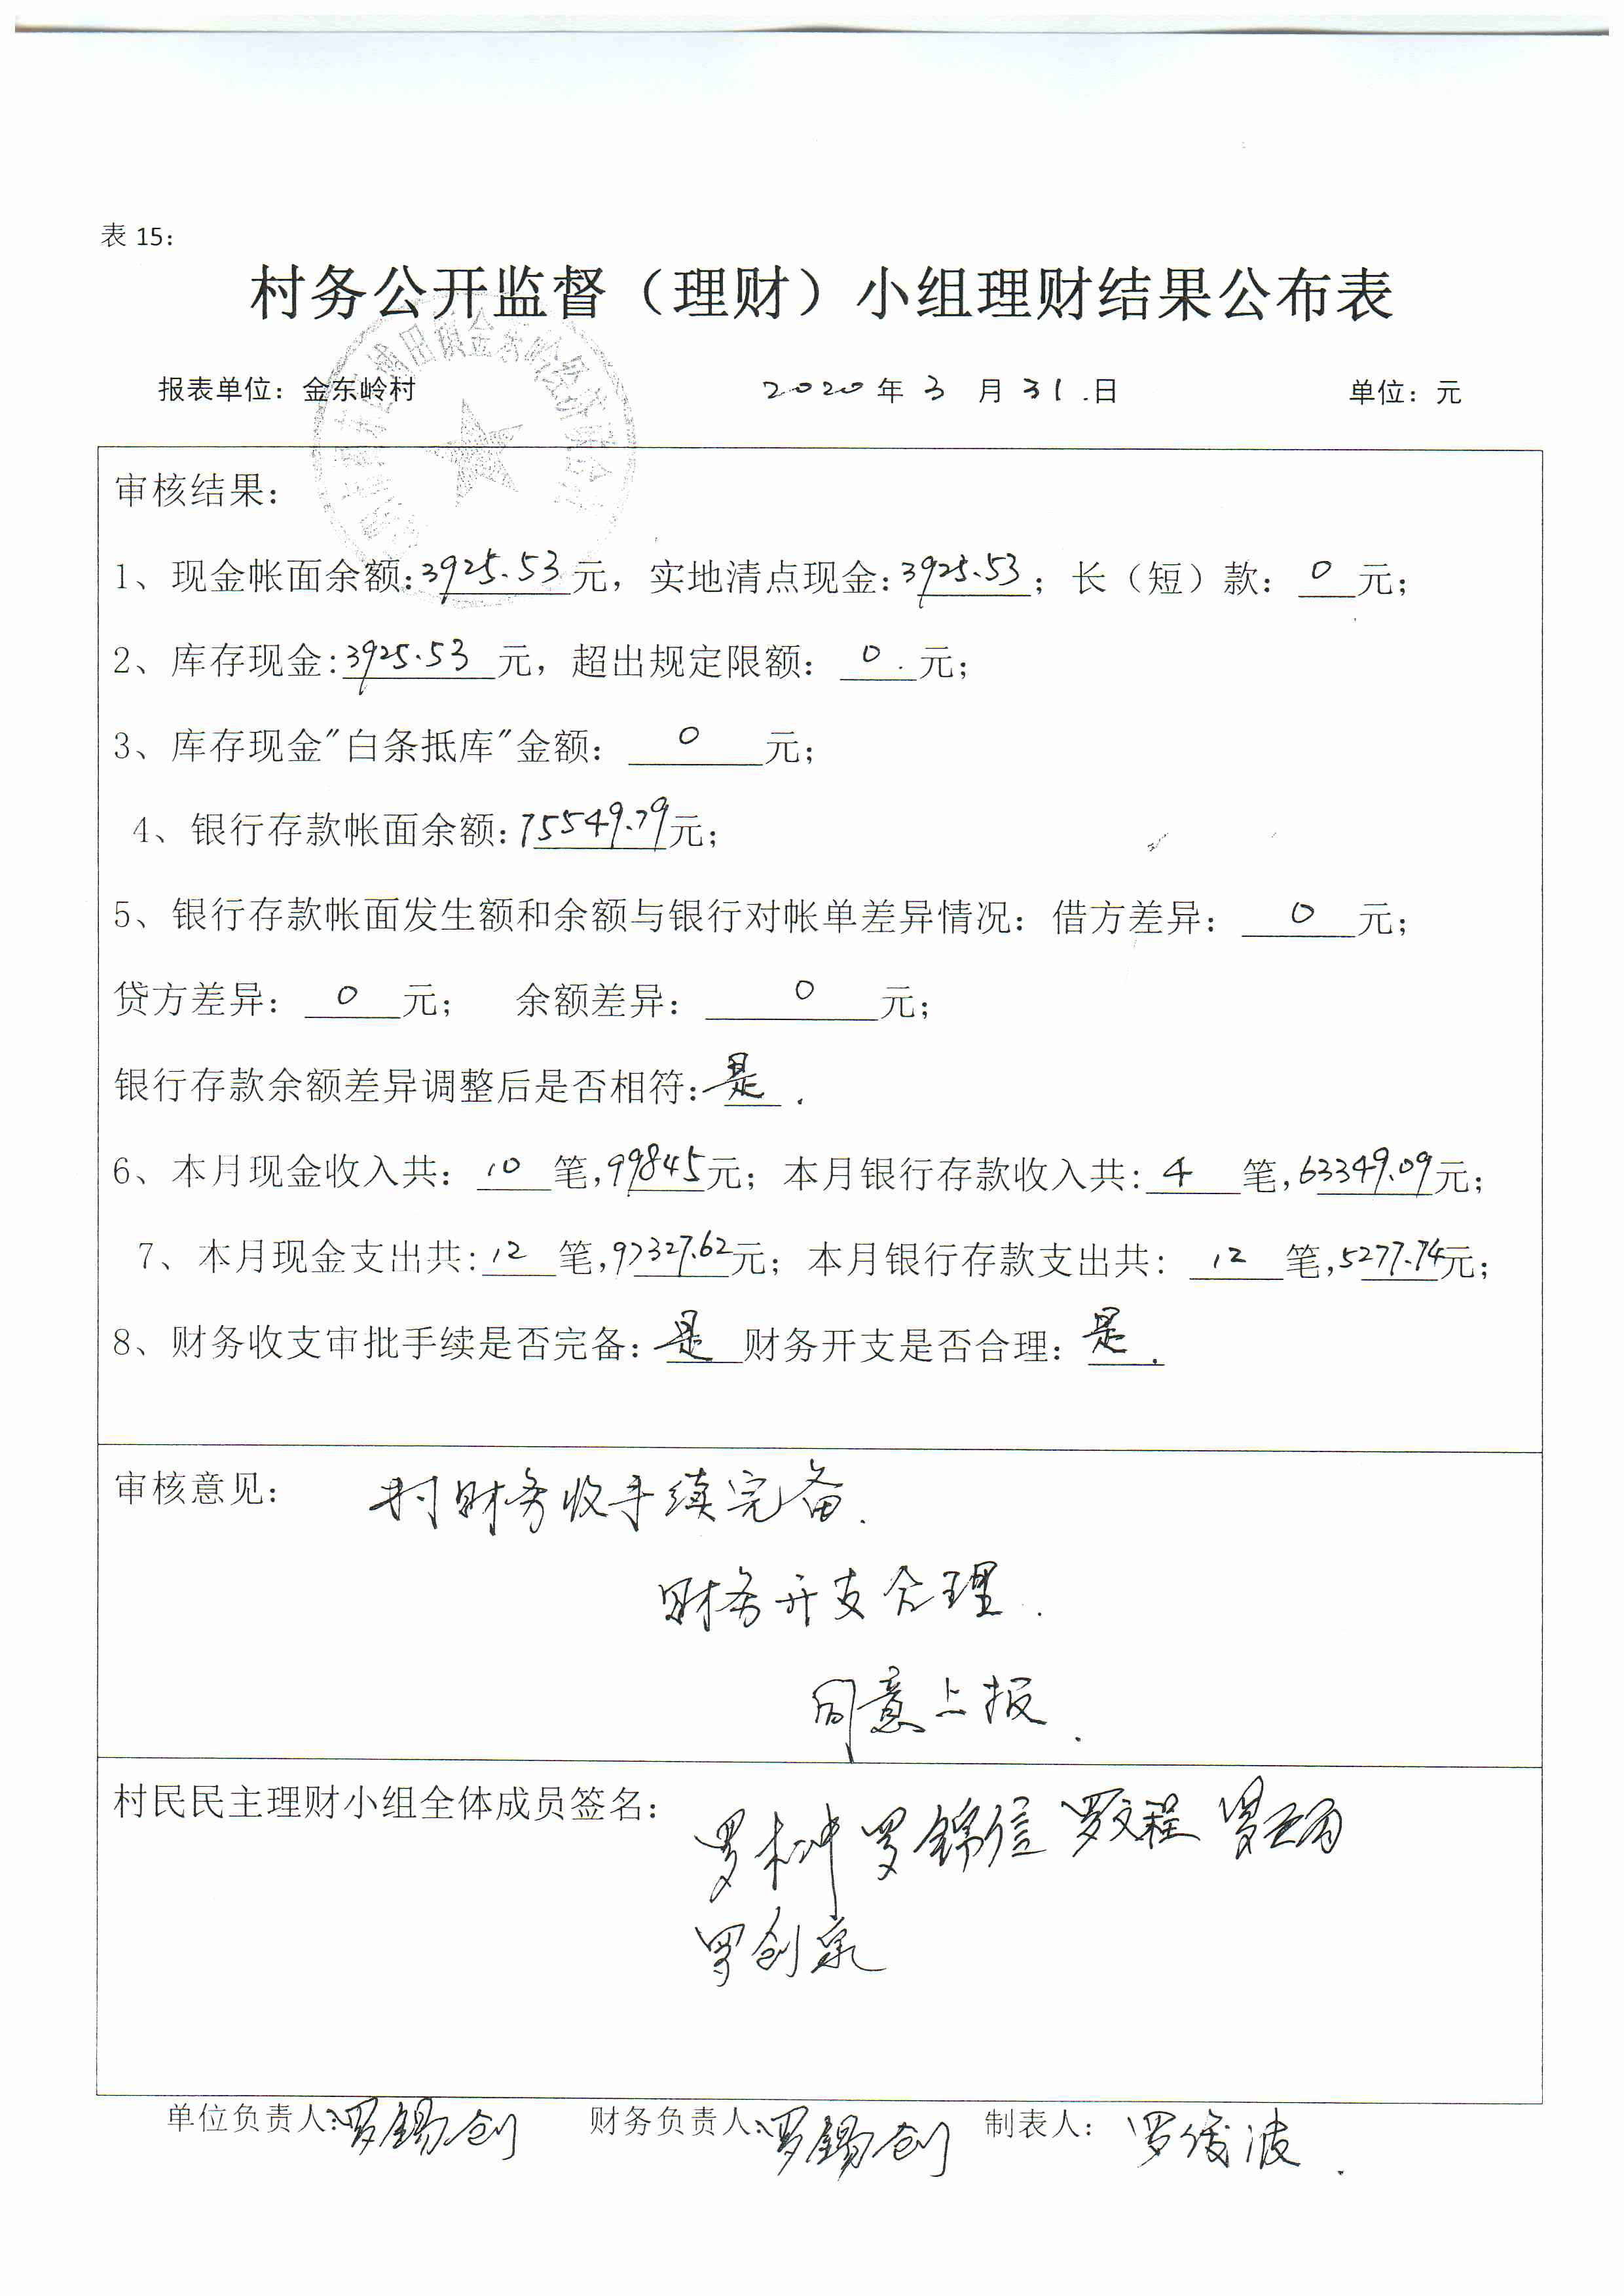 表 15：
村务公开监督（理财）小组理财结果公布表
报表单位：金东岭村 2020 年 3 月 31 日 单位：元
审核结果：
1、现金帐面余额：3925.53 元，实地清点现金：3925.53；长（短）款：0 元；
2、库存现金：3925.53 元，超出规定限额：0 元；
3、库存现金"白条抵库"金额：0 元；
4、银行存款帐面余额：75549.79元；
5、银行存款帐面发生额和余额与银行对帐单差异情况：借方差异：0 元；
贷方差异：0 元； 余额差异：0 元；
银行存款余额差异调整后是否相符：是.
6、本月现金收入共：10 笔，99845元；本月银行存款收入共：4 笔，63349.09元；
7、本月现金支出共：12 笔，97327.62元；本月银行存款支出共：12 笔，5277.74元；
8、财务收支审批手续是否完备：是 财务开支是否合理：是.
审核意见： 村财务收手续完备.
财务开支合理.
同意上报.
村民民主理财小组全体成员签名：
罗木冲 罗锦信 罗文程
罗创泉
单位负责人：罗锡创 财务负责人：罗锡创 制表人：罗俊波.